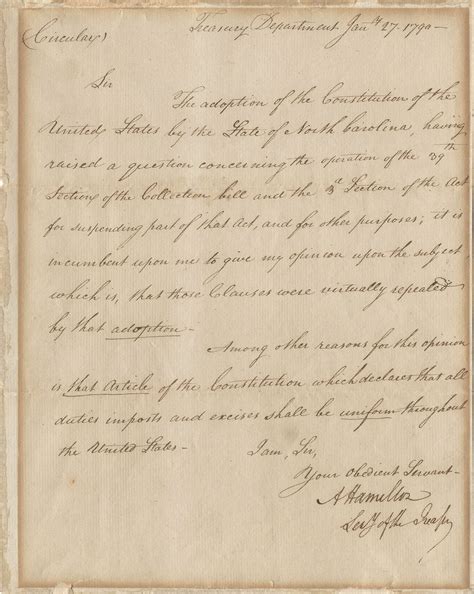 Circular)
Treasury Department Janʸ 27. 1790 –
Sir
The adoption of the Constitution of the
United States by the State of North Carolina, having
raised a question concerning the operation of the 39th
Section of the Collection bill and the 3d Section of the Act
for suspending part of that Act, and for other purposes; it is
incumbent upon me to give my opinion upon the subject
which is, that those Clauses were virtually repealed
by that adoption –
Among other reasons for this opinion
is that Article of the Constitution which declares that all
duties imposts and excises shall be uniform throughout
the United States –
I am, Sir,
Your Obedient Servant –
A Hamilton
Secy of the Treasy